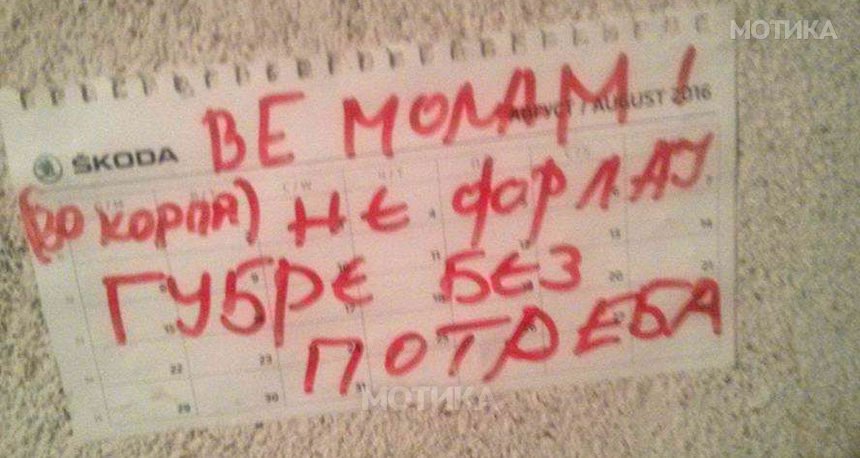 МОТИКА
ВЕ МОЛАМ!
АВГУСТ / AUGUST 2016
ŠKODA
(ВО КОРПА) НЕ ФАРЛАУ
ГУБРЕ БЕЗ
ПОТРЕБА
МОТИКА